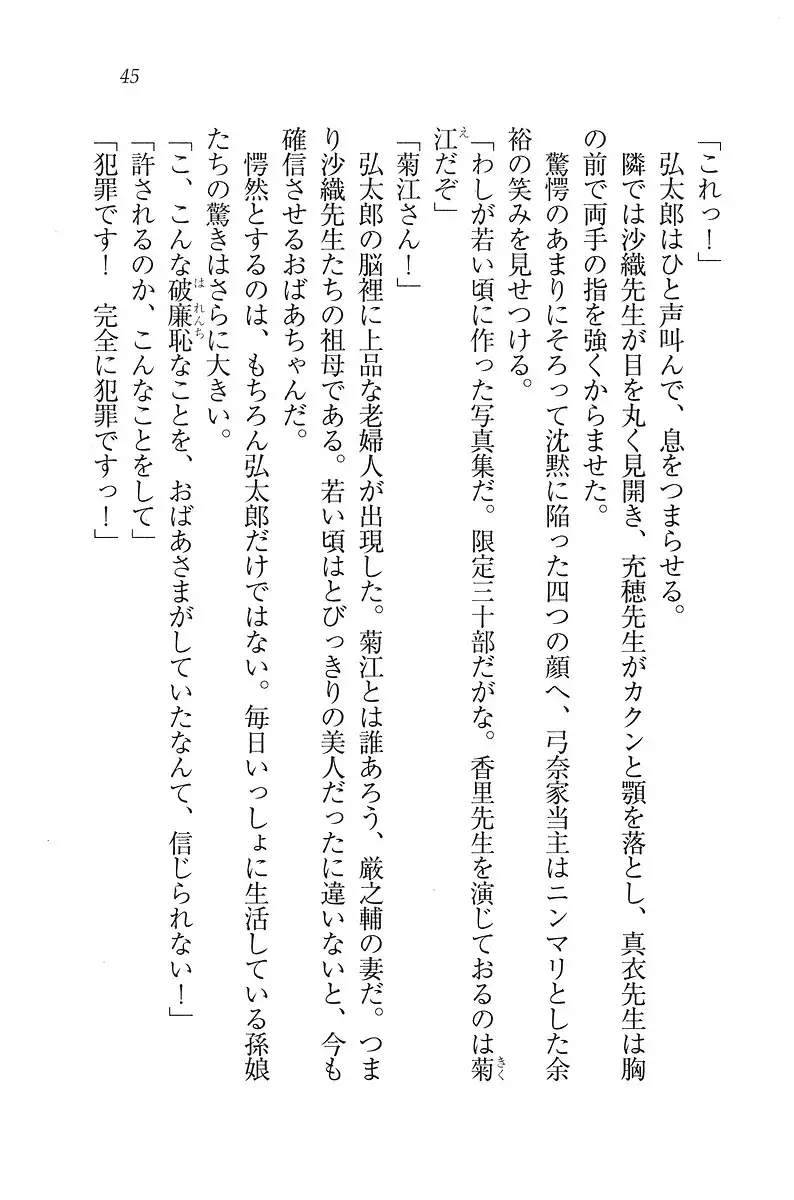 45
「これっ！」
　弘太郎はひと声叫んで、息をつまらせる。
　隣では沙織先生が目を丸く見開き、充穂先生がカクンと顎を落とし、真衣先生は胸
の前で両手の指を強くからませた。
　驚愕のあまりにそろって沈黙に陥った四つの顔へ、弓奈家当主はニンマリとした余
裕の笑みを見せつける。
「わしが若い頃に作った写真集だ。限定三十部だがな。香里先生を演じておるのは菊きく
江えだぞ」
「菊江さん！」
　弘太郎の脳裡に上品な老婦人が出現した。菊江とは誰あろう、厳之輔の妻だ。つま
り沙織先生たちの祖母である。若い頃はとびっきりの美人だったに違いないと、今も
確信させるおばあちゃんだ。
　愕然とするのは、もちろん弘太郎だけではない。毎日いっしょに生活している孫娘
たちの驚きはさらに大きい。
「こ、こんな破廉恥はれんちなことを、おばあさまがしていたなんて、信じられない！」
「許されるのか、こんなことをして」
「犯罪です！　完全に犯罪ですっ！」